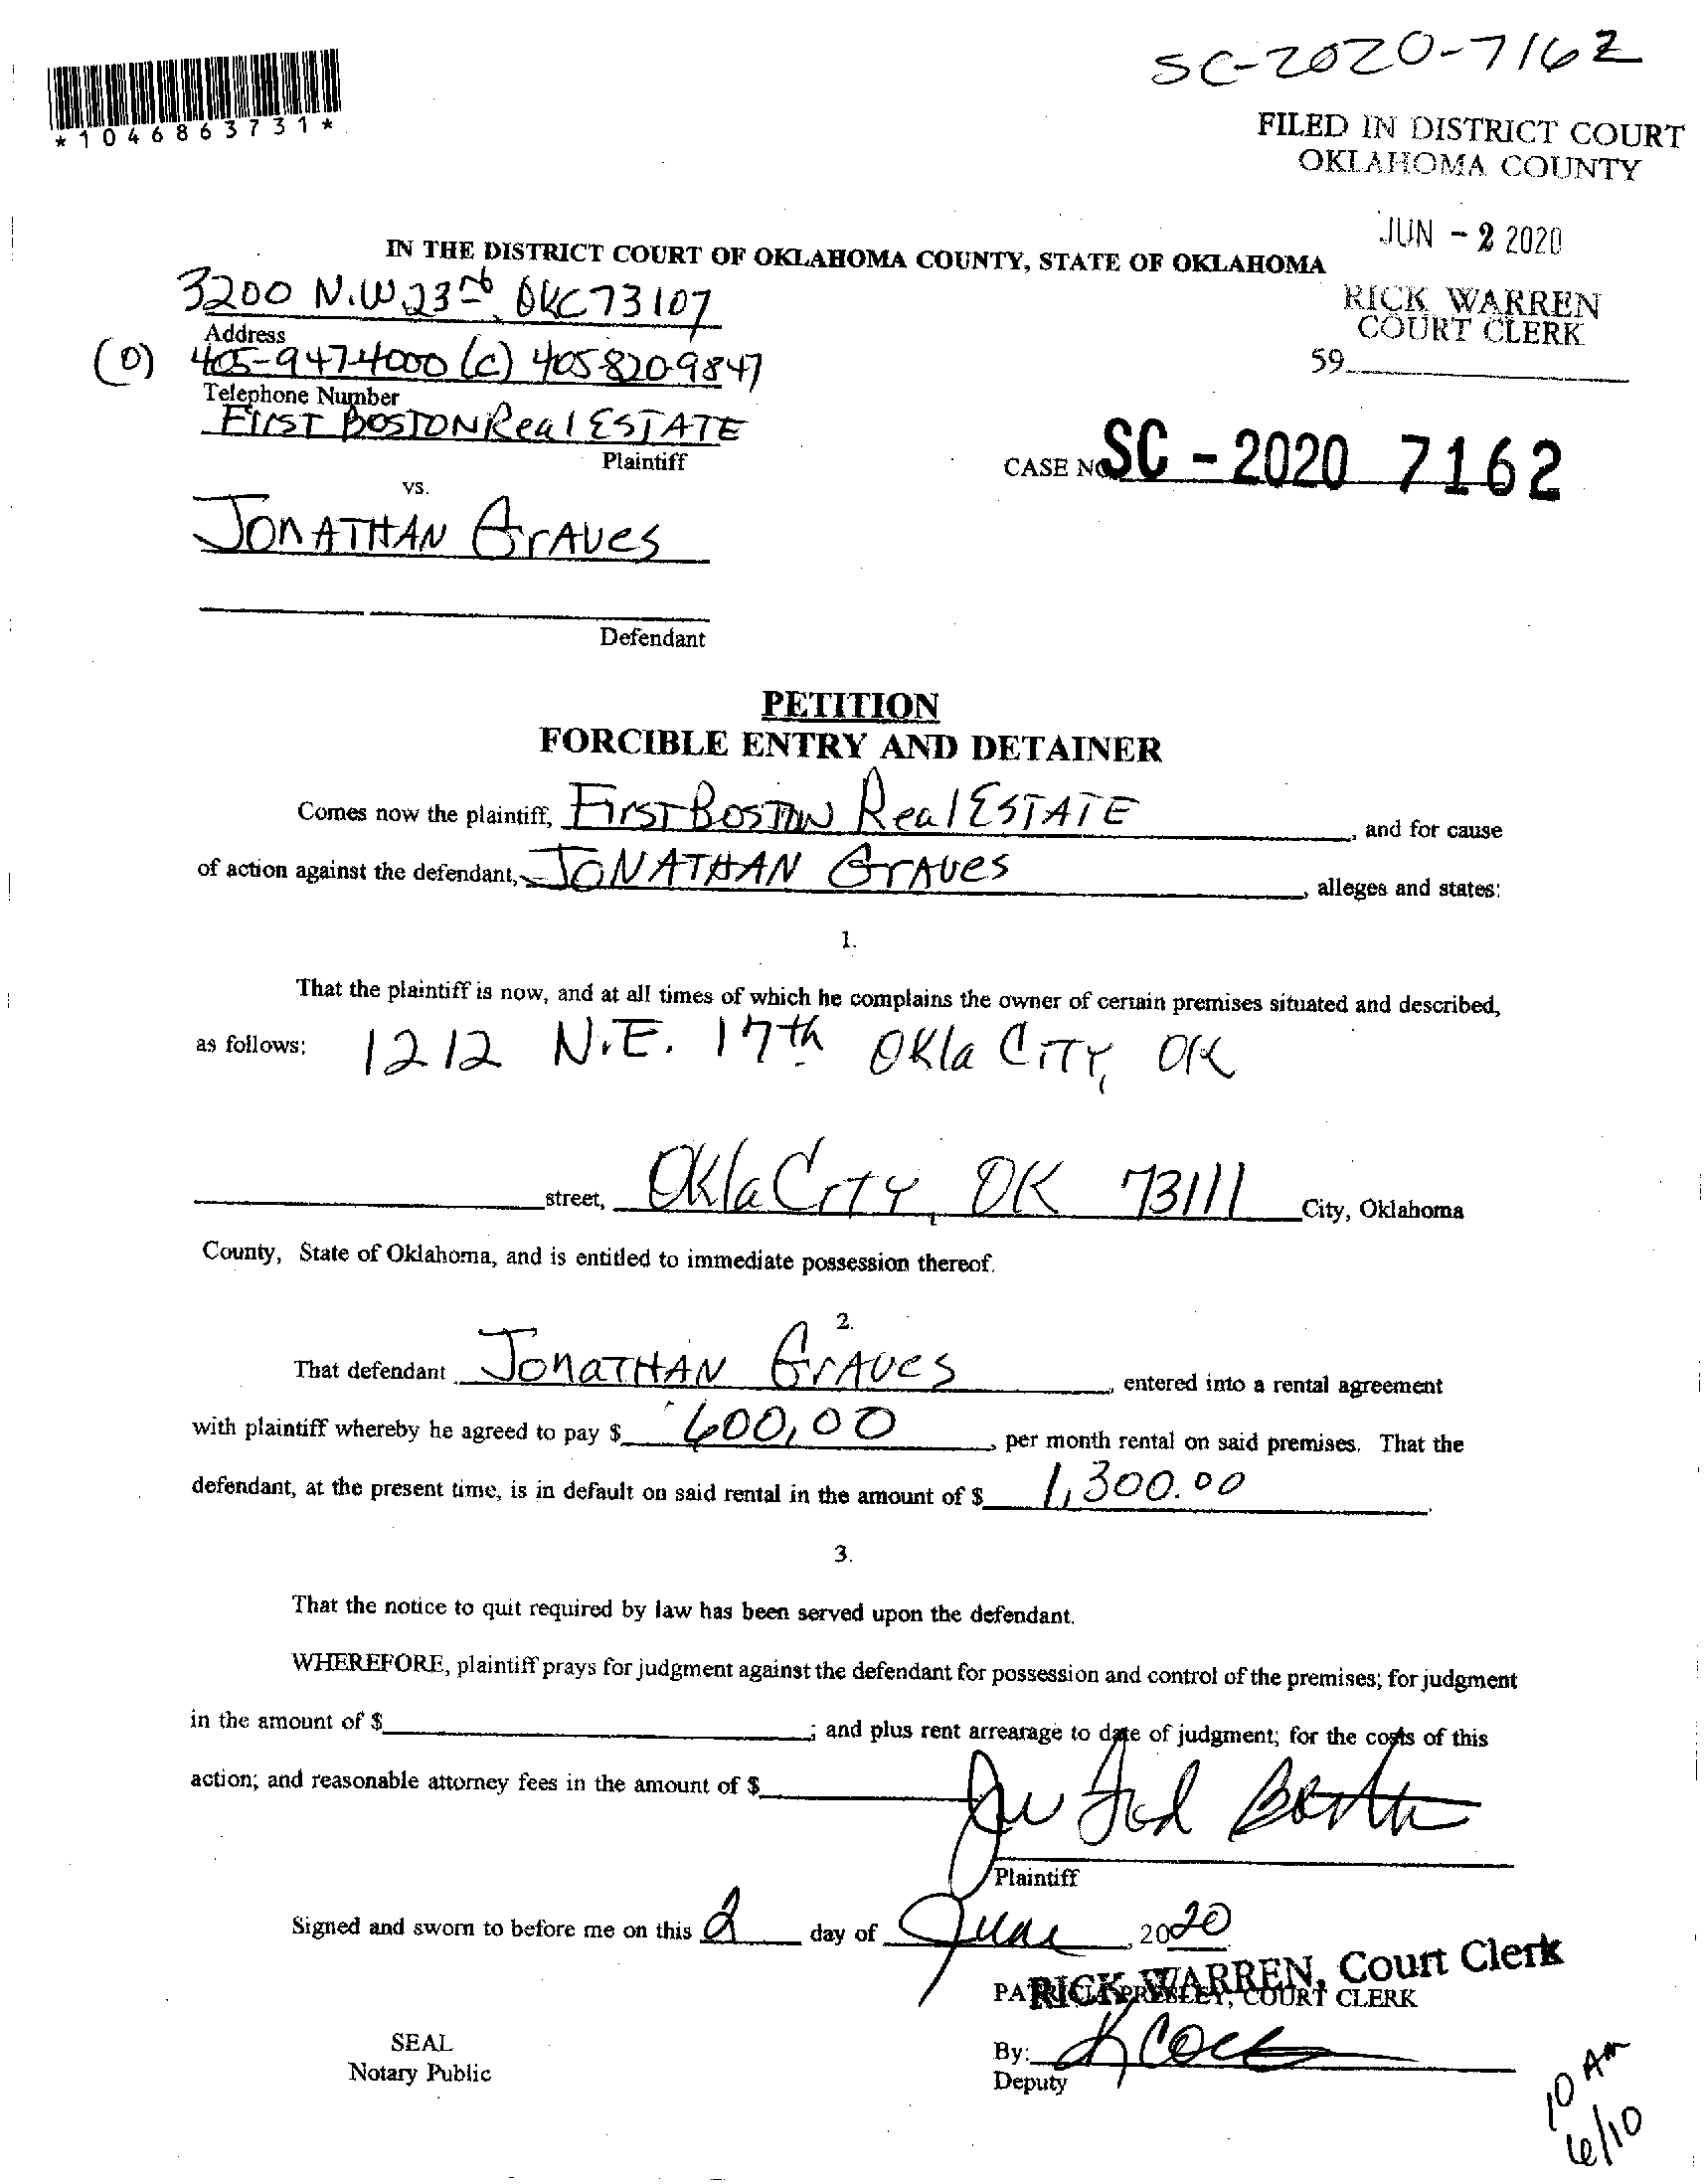 SC-2020-7162
*1046863731*
FILED IN DISTRICT COURT
OKLAHOMA COUNTY
JUN - 2 2020
IN THE DISTRICT COURT OF OKLAHOMA COUNTY, STATE OF OKLAHOMA
RICK WARREN
COURT CLERK
59
3200 N.W. 23rd, OKC 73107
Address
(O) 405-947-4000 (C) 405-820-9847
Telephone Number
FIRST BOSTON Real ESTATE
Plaintiff
CASE NO SC - 2020 7162
vs.
JONATHAN GrAVes
Defendant
PETITION
FORCIBLE ENTRY AND DETAINER
Comes now the plaintiff, First BOSTON Real ESTATE, and for cause
of action against the defendant, JONATHAN GrAVes, alleges and states:
1.
That the plaintiff is now, and at all times of which he complains the owner of certain premises situated and described,
as follows: 1212 N.E. 17th Okla CITY, OK
street, Okla CITY, OK 73111 City, Oklahoma
County, State of Oklahoma, and is entitled to immediate possession thereof.
2.
That defendant JonATHAN GrAVes, entered into a rental agreement
with plaintiff whereby he agreed to pay $ 600,00, per month rental on said premises. That the
defendant, at the present time, is in default on said rental in the amount of $ 1,300.00.
3.
That the notice to quit required by law has been served upon the defendant.
WHEREFORE, plaintiff prays for judgment against the defendant for possession and control of the premises; for judgment
in the amount of $ ; and plus rent arrearage to date of judgment; for the costs of this
action; and reasonable attorney fees in the amount of $
Plaintiff
Signed and sworn to before me on this 2 day of June, 2020
RICK WARREN, Court Clerk
PATRICIA PRESLEY, COURT CLERK
SEAL
Notary Public
By:
Deputy
10 AM
6/10